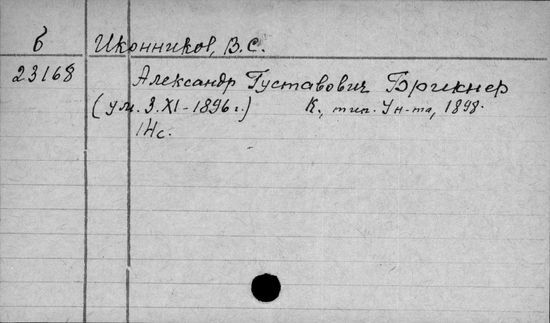 б Иконников, В.С.
23168 Александр Густавович Брикнер
(ум. 3.XI-1896 г.) К., тип. Ун-та, 1898.
14с.